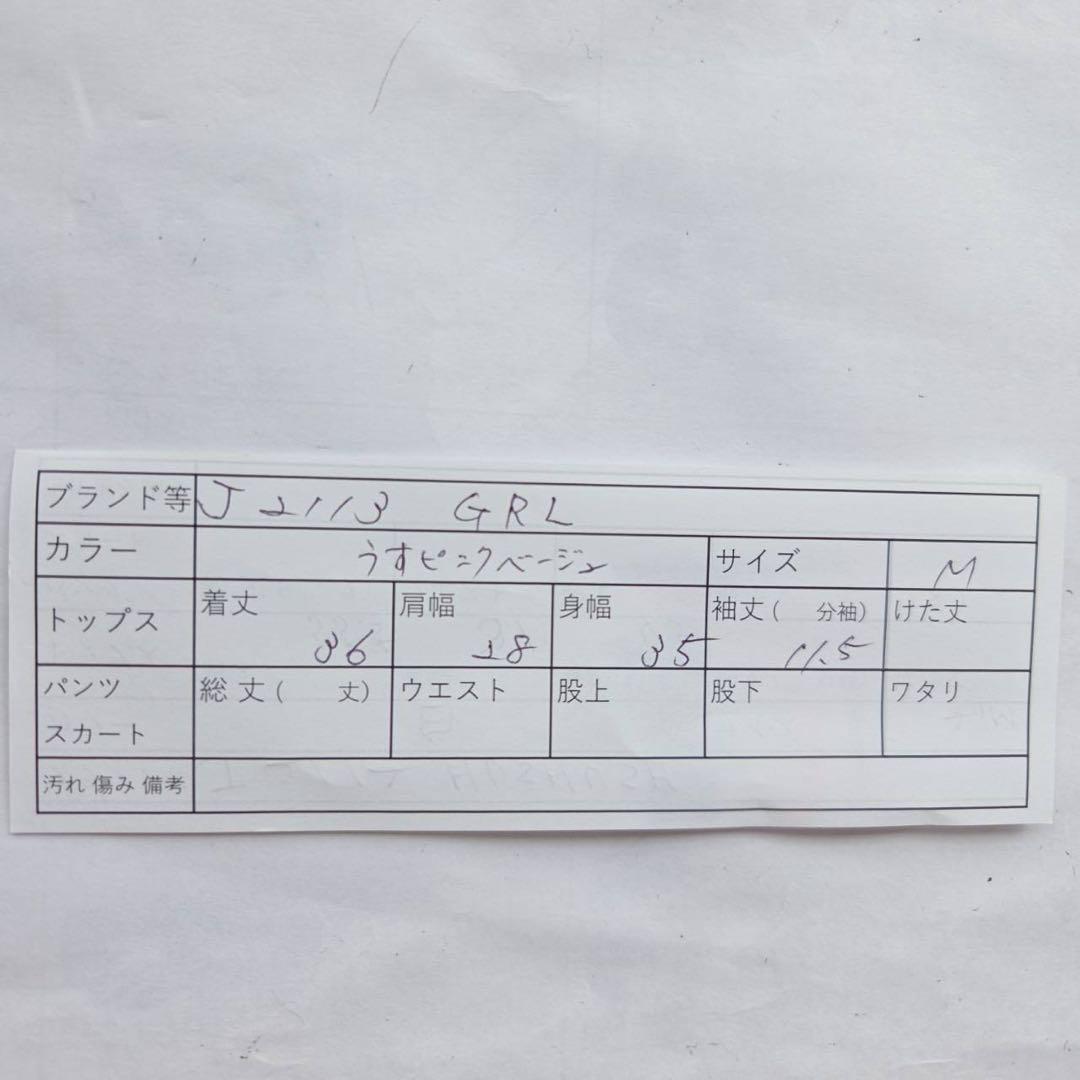 ブランド等 J2113 GRL
カラー うすピンクベージュ サイズ M
トップス 着丈 36 肩幅 28 身幅 35 袖丈( 分袖) 11.5 けた丈
パンツ スカート 総丈( 丈) ウエスト 股上 股下 ワタリ
汚れ 傷み 備考